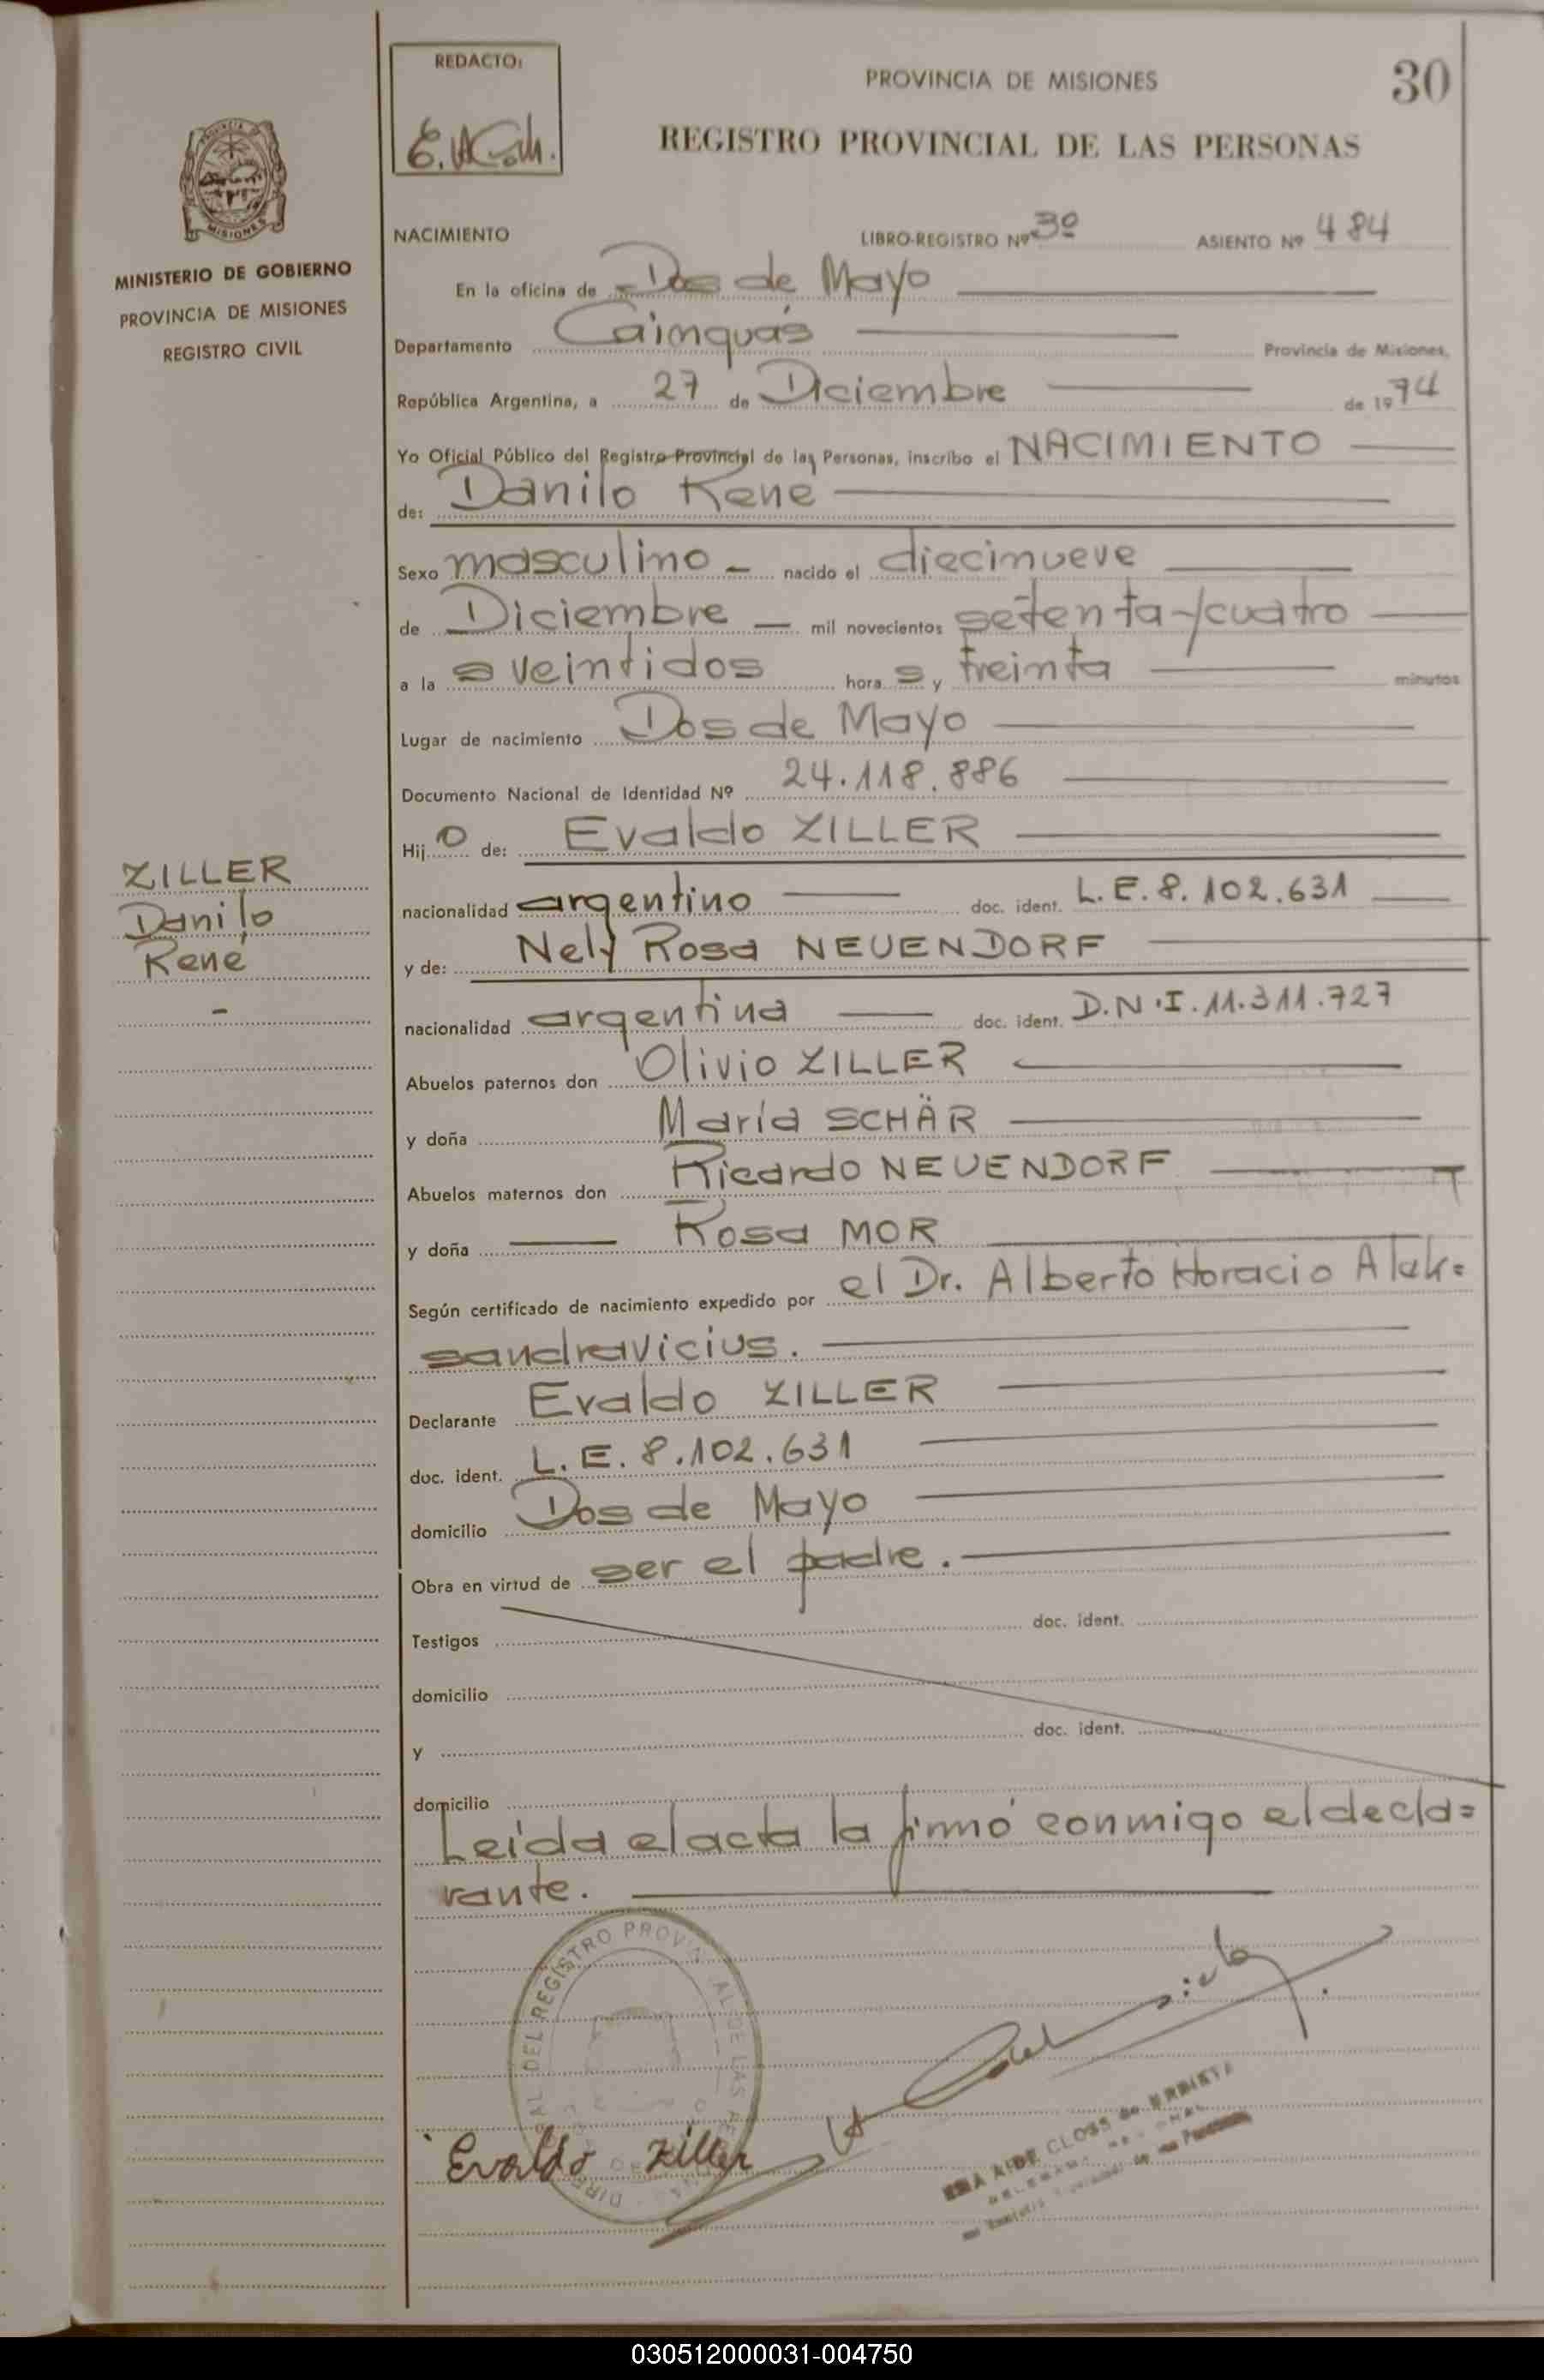 REDACTO:
PROVINCIA DE MISIONES
30
REGISTRO PROVINCIAL DE LAS PERSONAS
MISIONES
MINISTERIO DE GOBIERNO
PROVINCIA DE MISIONES
REGISTRO CIVIL
NACIMIENTO LIBRO-REGISTRO Nº 3º ASIENTO Nº 484
En la oficina de Dos de Mayo
Departamento Cainguás Provincia de Misiones,
República Argentina, a 27 de Diciembre de 1974
Yo Oficial Público del Registro Provincial de las Personas, inscribo el NACIMIENTO
de: Danilo Rene
Sexo masculino - nacido el diecinueve
de Diciembre - mil novecientos setenta y cuatro
a la s veintidos hora s y treinta minutos
Lugar de nacimiento Dos de Mayo
Documento Nacional de Identidad Nº 24.118.886
Hij o de: Evaldo ZILLER
nacionalidad argentino doc. ident. L.E. 8.102.631
y de: Nely Rosa NEUENDORF
nacionalidad argentina doc. ident. D.N.I. 11.311.727
Abuelos paternos don Olivio ZILLER
y doña María SCHÄR
Abuelos maternos don Ricardo NEUENDORF
y doña Rosa MOR
Según certificado de nacimiento expedido por el Dr. Alberto Horacio Alek=
sandravicius.
Declarante Evaldo ZILLER
doc. ident. L.E. 8.102.631
domicilio Dos de Mayo
Obra en virtud de ser el padre.
Testigos doc. ident.
domicilio
y doc. ident.
domicilio
Leída el acta la firmó conmigo el decla=
rante.
ZILLER
Danilo
René
-
Evaldo Ziller
030512000031-004750